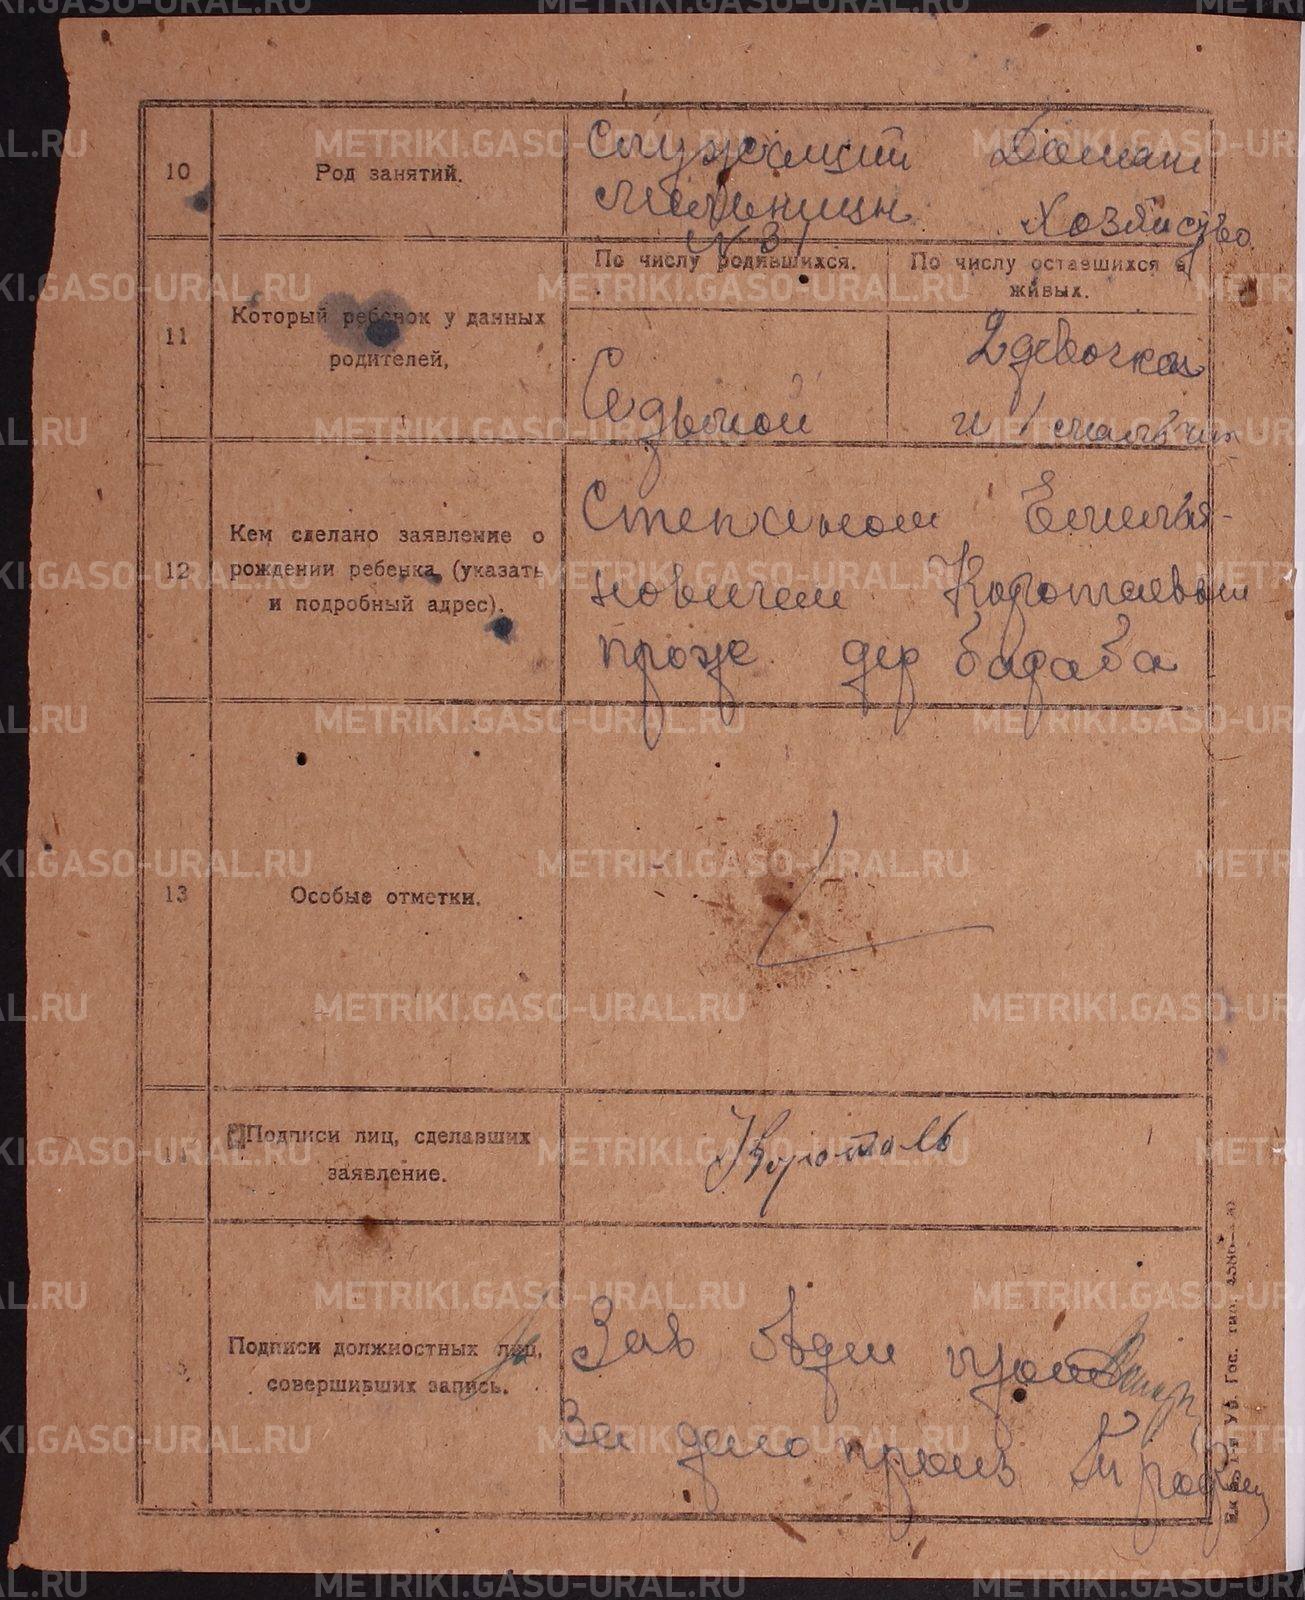 10
Род занятий.
Служащий
мельницы
№ 3
Домаш
Хозяйство
11
Который ребенок у данных
родителей,
По числу родившихся.
Седьмой
По числу оставшихся в
живых.
2 девочки
и 1 мальчик
12
Кем сделано заявление о
рождении ребенка (указать
и подробный адрес).
Степаном Емилья-
новичем Коротаевым
прож дер бараба
13
Особые отметки.
Подписи лиц, сделавших
заявление.
Коротаев
Подписи должностных лиц,
совершивших запись.
За
Зав
За дело произ
METRIKI.GASO-URAL.RU